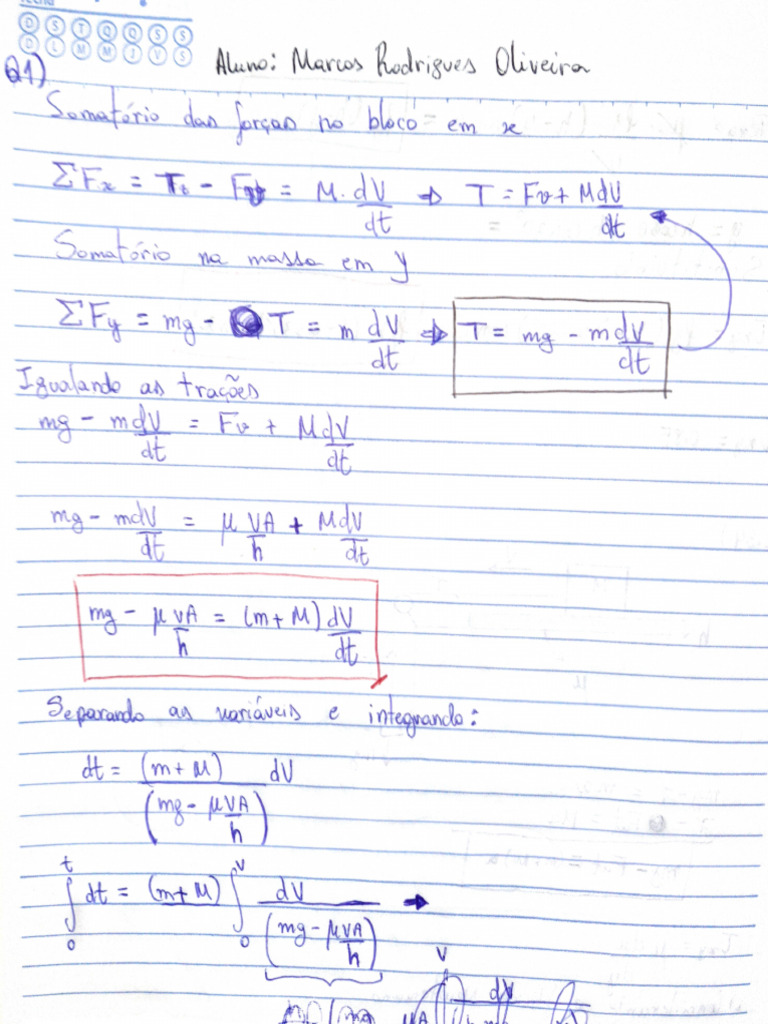 D S T Q Q S S
D L M M J V S
Aluno: Marcos Rodrigues Oliveira
Q1)
Somatório das forças no bloco em x
ΣFx = Tt - Fv = M. dV/dt ⇒ T = Fv + MdV/dt
Somatório na massa em y
ΣFy = mg - T = m dV/dt ⇒ T = mg - mdV/dt
Igualando as trações
mg - mdV/dt = Fv + MdV/dt
mg - mdV/dt = μ VA/h + MdV/dt
mg - μ VA/h = (m+M) dV/dt
Separando as variáveis e integrando:
dt = (m+M)/(mg - μVA/h) dV
∫₀ᵗ dt = (m+M) ∫₀ⱽ dV/(mg - μVA/h) →